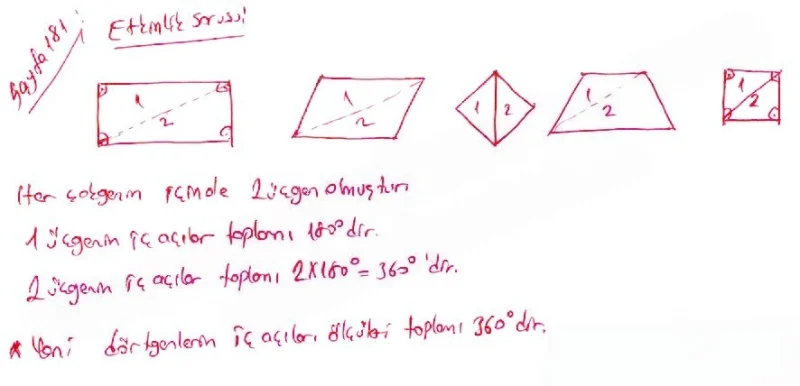 Sayfa 181:
Etkinlik sorusu:
1
2
1
2
1 2
1
2
1
2
Her çokgenin içinde 2 üçgen olmuştur.
1 üçgenin iç açılar toplamı 180° dir.
2 üçgenin iç açılar toplamı 2X180° = 360° 'dir.
* Yani dörtgenlerin iç açıları ölçüleri toplamı 360° dir.